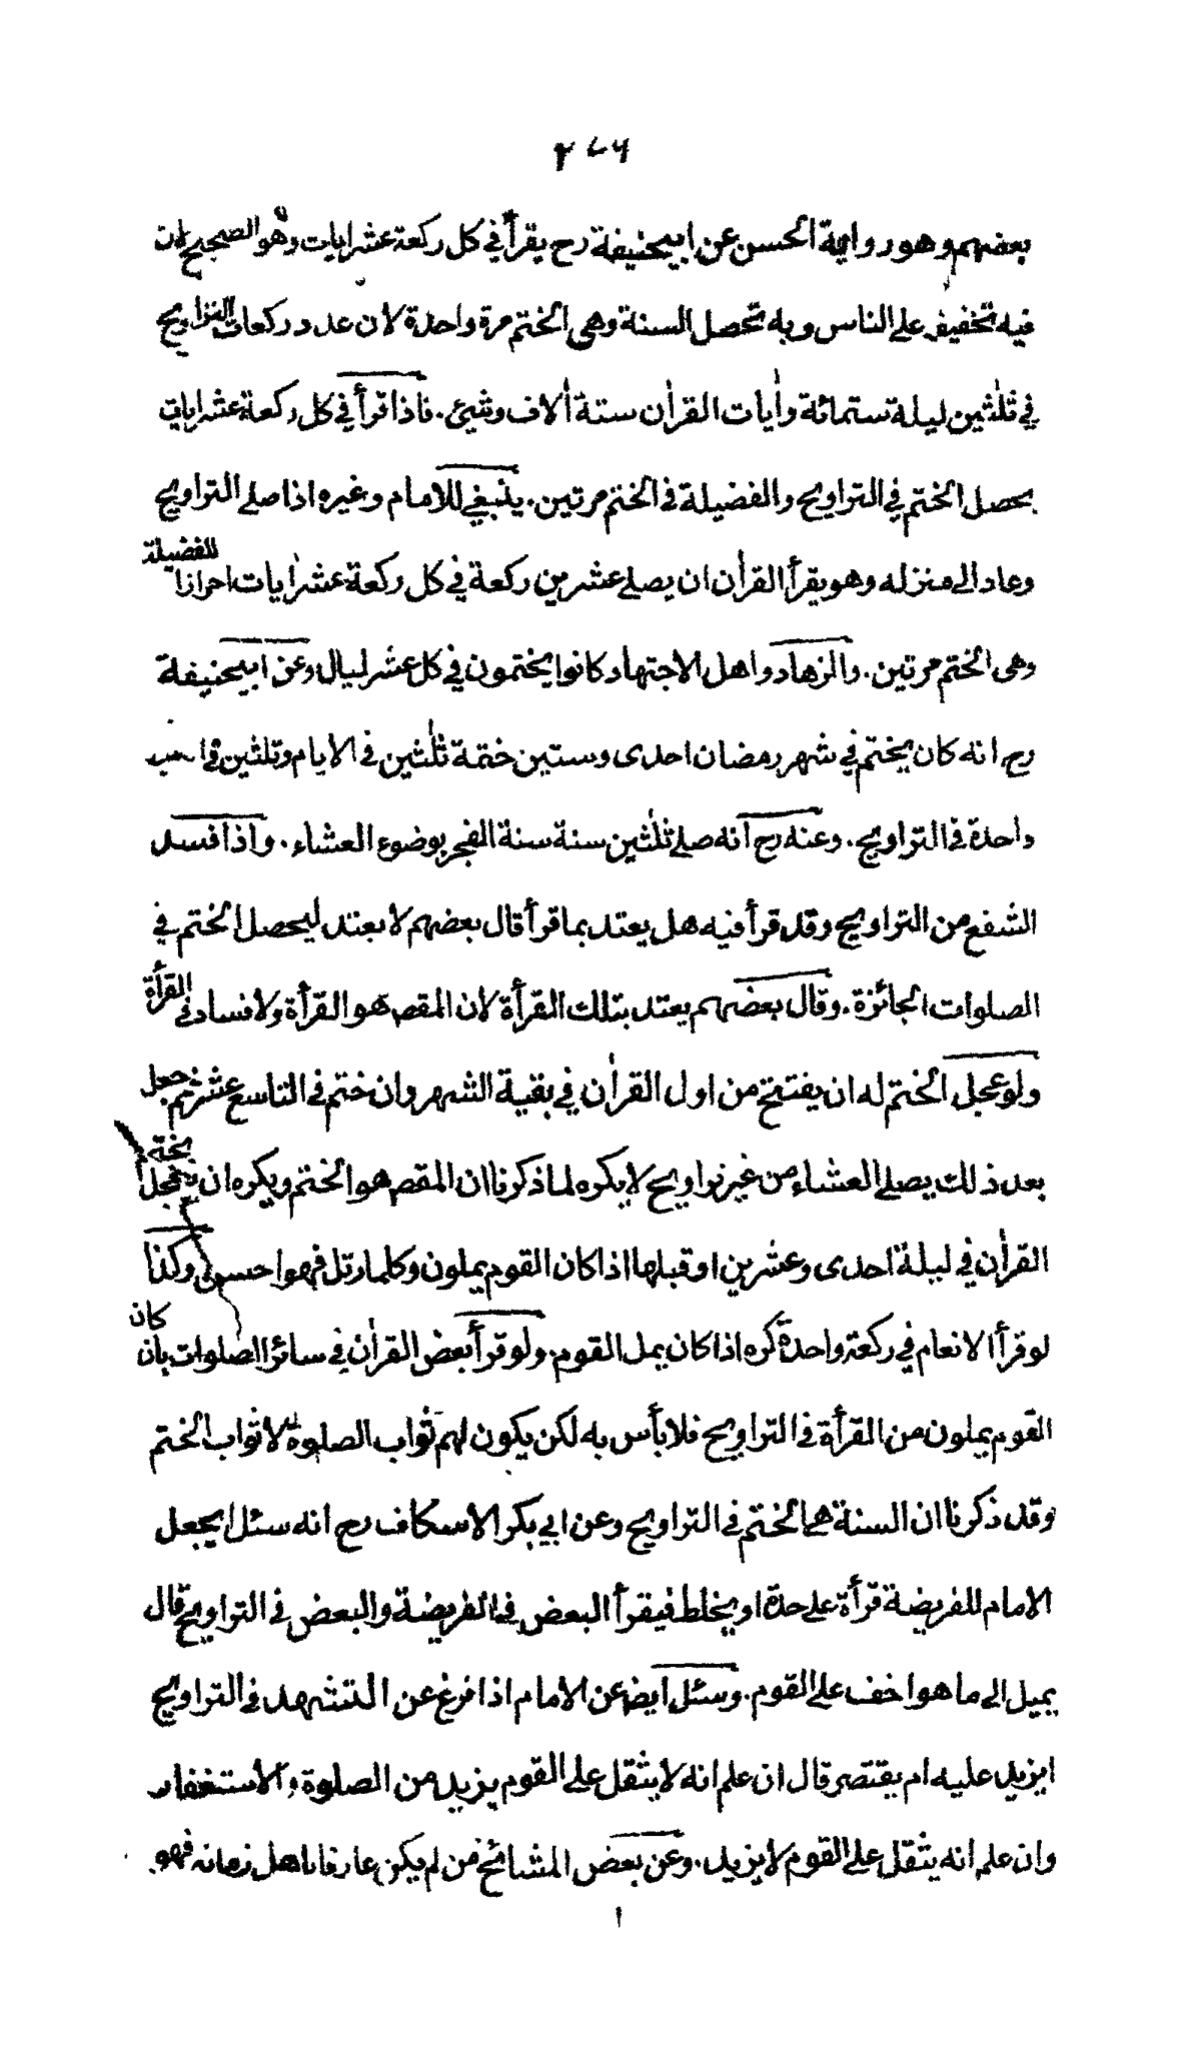 بعضهم وهو رواية الحسن عن ابيحنيفة رح يقرأ في كل ركعة عشر ايات وهو الصحيح لان
فيه تخفيف على الناس وبه تحصل السنة وهى الختم مرة واحدة لان عدد ركعات التراويح
في ثلٰثين ليلة ستمائة واٰيات القراٰن ستة اٰلاف وشئ. فاذا قرأ في كل ركعة عشر ايات
يحصل الختم في التراويح والفضيلة فى الختم مرتين. ينبغي للامام وغيره اذا صلى التراويح
وعاد الى منزله وهو يقرأ القراٰن ان يصلى عشرين ركعة في كل ركعة عشر اٰيات احرازا للفضيلة
وهى الختم مرتين. والزهاد واهل الاجتهاد كانوا يختمون في كل عشر ليال وعن ابيحنيفة
رح انه كان يختم في شهر رمضان احدى وستين ختمة ثلٰثين فى الايام وثلٰثين في
واحدة فى التراويح. وعنه رح انه صلى ثلٰثين سنة سنة الفجر بوضوء العشاء. واذا فسد
الشفع من التراويح وقد قرأ فيه هل يعتد بما قرأ قال بعضهم لا يعتد ليحصل الختم في
الصلوات الجائزة. وقال بعضهم يعتد بتلك القرأة لان المقص هو القرأة ولا فساد فى القرأة
ولو عجل الختم له ان يفتتح من اول القراٰن في بقية الشهر وان ختم فى التاسع عشر ثم جعل
بعد ذلك يصلى العشاء من غير تراويح لا يكره لما ذكرنا ان المقص هو الختم ويكره ان يعجل ختم
القراٰن في ليلة احدى وعشرين او قبلها اذا كان القوم يملون وكلما رتل فهو احسن وكذا
لو قرأ الانعام في ركعة واحدة كره اذا كان يمل القوم. ولو قرأ بعض القراٰن في سائر الصلوات بان كان
القوم يملون من القرأة فى التراويح فلا بأس به لكن يكون لهم ثواب الصلوة لا ثواب الختم
وقد ذكرنا ان السنة هى الختم فى التراويح وعن ابي بكر الاسكاف رح انه سئل ايجعل
الامام للفريضة قرأة على حدة او يخلط فيقرأ البعض فى الفريضة والبعض فى التراويح قال
يميل الى ما هو اخف على القوم. وسئل ايضا عن الامام اذا فرغ عن التشهد فى التراويح
ايزيد عليه ام يقتصر قال ان علم انه لا يثقل على القوم يزيد من الصلوة والاستغفار
وان علم انه يثقل على القوم لا يزيد. وعن بعض المشائخ من لم يكن عارفا باهل زمانه فهو